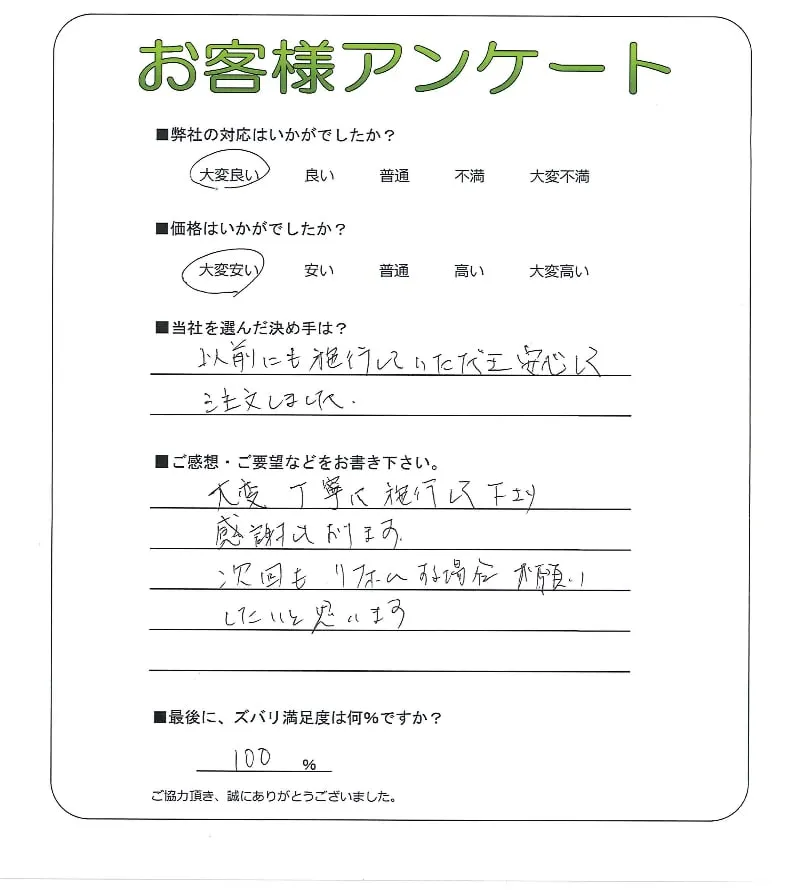 お客様アンケート
■弊社の対応はいかがでしたか?
大変良い 良い 普通 不満 大変不満
■価格はいかがでしたか?
大変安い 安い 普通 高い 大変高い
■当社を選んだ決め手は?
以前にも施行していただき安心して
注文しました.
■ご感想・ご要望などをお書き下さい。
大変 丁寧に施行して下さり
感謝しております.
次回も リフォームする場合 お願い
したいと思います
■最後に、ズバリ満足度は何%ですか?
100 %
ご協力頂き、誠にありがとうございました。